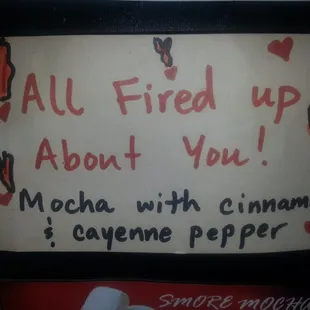 All Fired up
About You!
Mocha with cinnam
& cayenne pepper
SMORE MOCHA